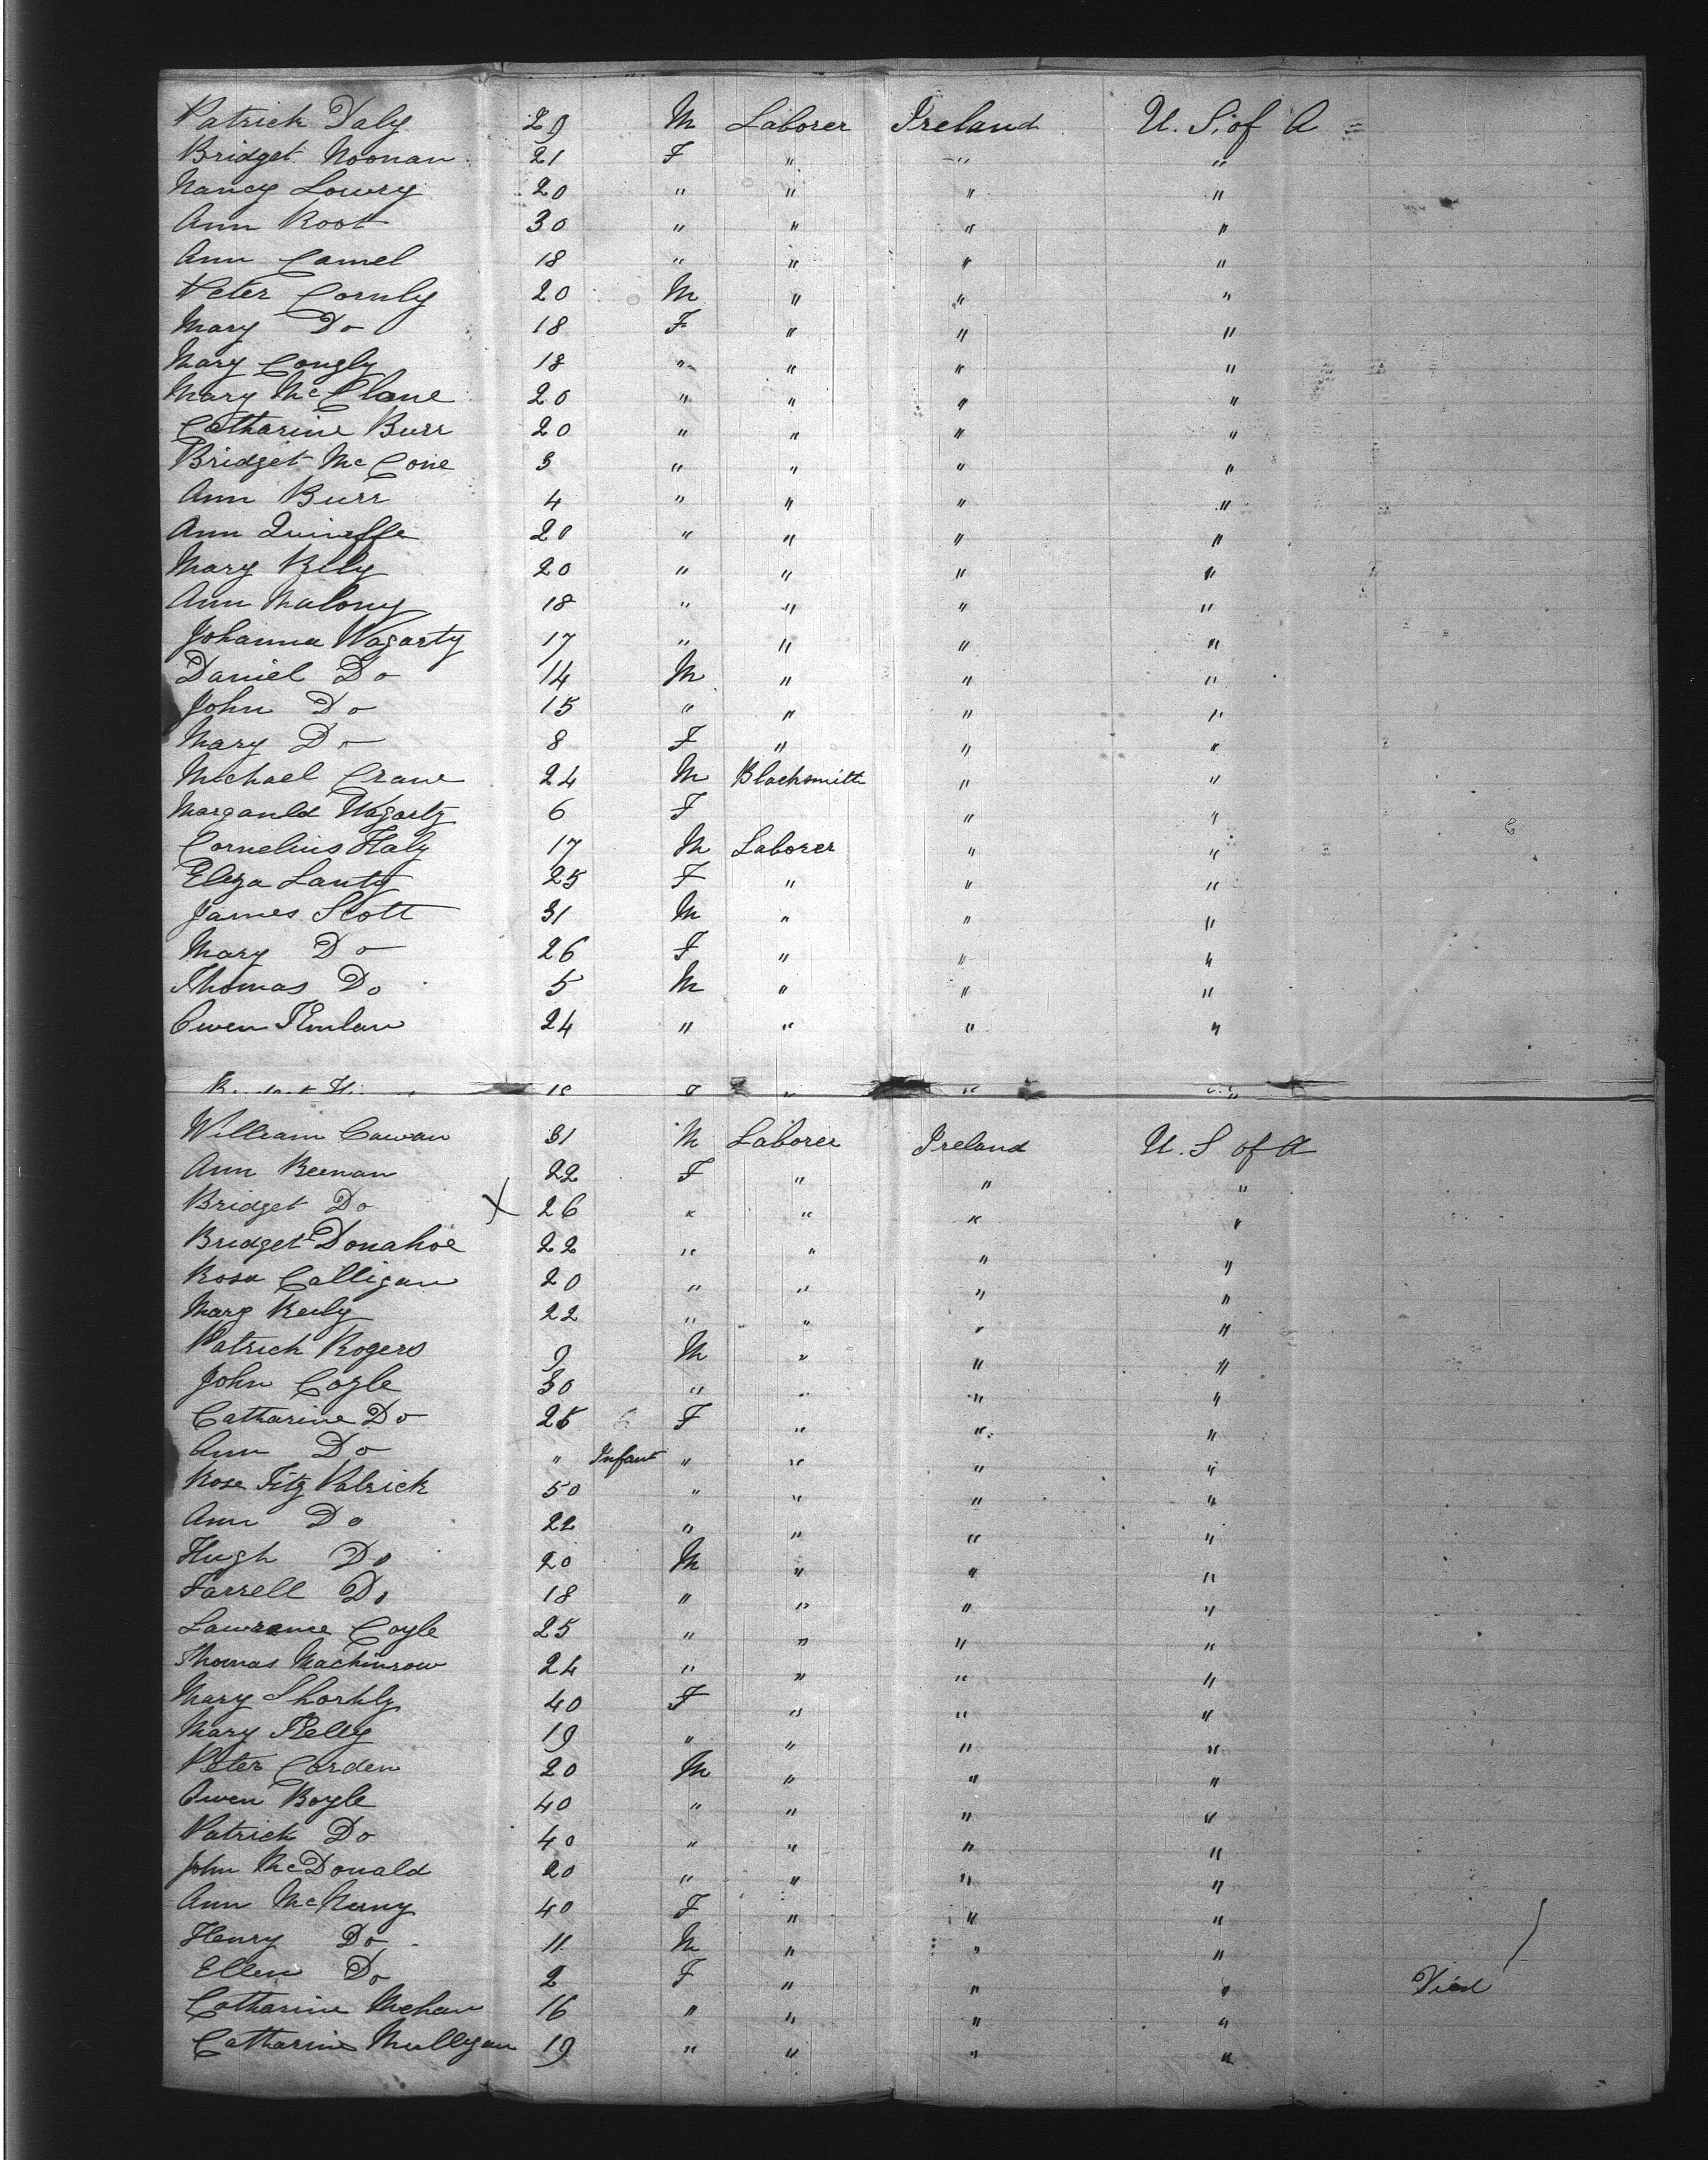 Patrick Daly 29 M Laborer Ireland U. S. of A
Bridget Noonan 21 F " " "
Nancy Lowry 20 " " " "
Ann Root 30 " " " "
Ann Camel 18 " " " "
Peter Cornly 20 M " " "
Mary Do 18 F " " "
Mary Congly 18 " " " "
Mary McClane 20 " " " "
Catharine Burr 20 " " " "
Bridget McCone 3 " " " "
Ann Burr 4 " " " "
Ann 20 " " " "
Mary Rily 20 " " " "
Ann Malony 18 " " " "
Johanna Hagarty 17 " " " "
Daniel Do 14 M " " "
John Do 15 " " " "
Mary Do 8 F " " "
Michael Crane 24 M Blacksmith " "
Hagarty 6 F " "
Cornelius Haly 17 M Laborer " "
Eliza Lanty 25 F " " "
James Scott 31 M " " "
Mary Do 26 F " " "
Thomas Do 5 M " " "
Owen 24 " " " "
William Cowan 31 M Laborer Ireland U. S of A
Ann Beenan 22 F " " "
Bridget Do X 26 " " " "
Bridget Donahoe 22 " " " "
Rosa Calligan 20 " " " "
Mary Reily 22 " " " "
Patrick Rogers 9 M " " "
John Coyle 30 " " " "
Catharine Do 25 F " " "
Ann Do " Infant " " " "
Rose Fitz Patrick 50 " " " "
Ann Do 22 " " " "
Hugh Do 20 M " " "
Farrell Do 18 " " " "
Lawrence Coyle 25 " " " "
Thomas 24 " " " "
Mary Shorkly 40 F " " "
Mary Kelly 19 " " " "
Peter Corden 20 M " " "
Owen Boyle 40 " " " "
Patrick Do 40 " " " "
John McDonald 20 " " " "
Ann McNerny 40 F " " "
Henry Do 11 M " " "
Ellen Do 2 F " " " Died
Catharine Mehan 16 " " " "
Catharine Mulligan 19 " " " "